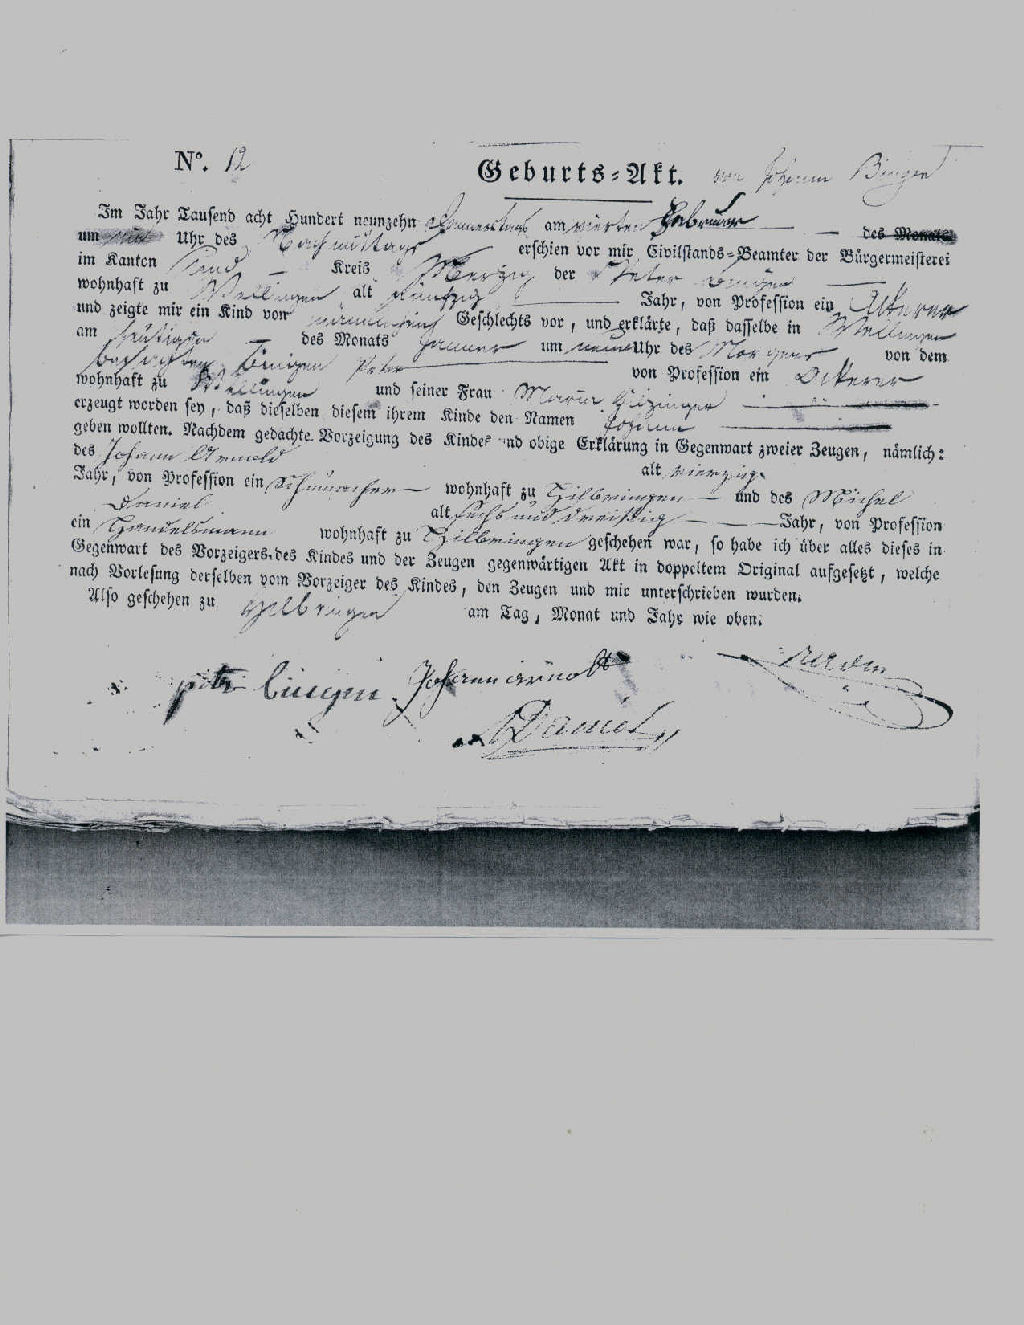 No. 12 Geburts-Akt. von Johann Bingen
Im Jahr Tausend acht Hundert neunzehn Donnerstags am vierten Februar — des Monats
um Uhr des Nachmittags erschien vor mir Civilstands-Beamter der Bürgermeisterei
im Kanton Kreis Merzig der Peter Bingen
wohnhaft zu Wellingen alt fünfzig — Jahr, von Profession ein Ackerer
und zeigte mir ein Kind von männlichen Geschlechts vor, und erklärte, daß dasselbe in Wellingen
am heutigen — des Monats um neun Uhr des Morgens von dem
besagten Bingen Peter — von Profession ein Ackerer
wohnhaft zu Wellingen und seiner Frau Maria
erzeugt worden sey, daß dieselben diesem ihrem Kinde den Namen Johann
geben wollten. Nachdem gedachte Vorzeigung des Kindes und obige Erklärung in Gegenwart zweier Zeugen, nämlich:
des Johann Arnold alt vierzig
Jahr, von Profession ein Schumacher — wohnhaft zu Hilbringen — und des Michel
Daniel alt sechs und dreissig — Jahr, von Profession
ein Handelsmann wohnhaft zu Hilbringen geschehen war, so habe ich über alles dieses in
Gegenwart des Vorzeigers des Kindes und der Zeugen gegenwärtigen Akt in doppeltem Original aufgesetzt, welche
nach Vorlesung derselben vom Vorzeiger des Kindes, den Zeugen und mir unterschrieben wurden.
Also geschehen zu Hilbringen am Tag, Monat und Jahr wie oben.
peter bingen Johann arnold
Daniel